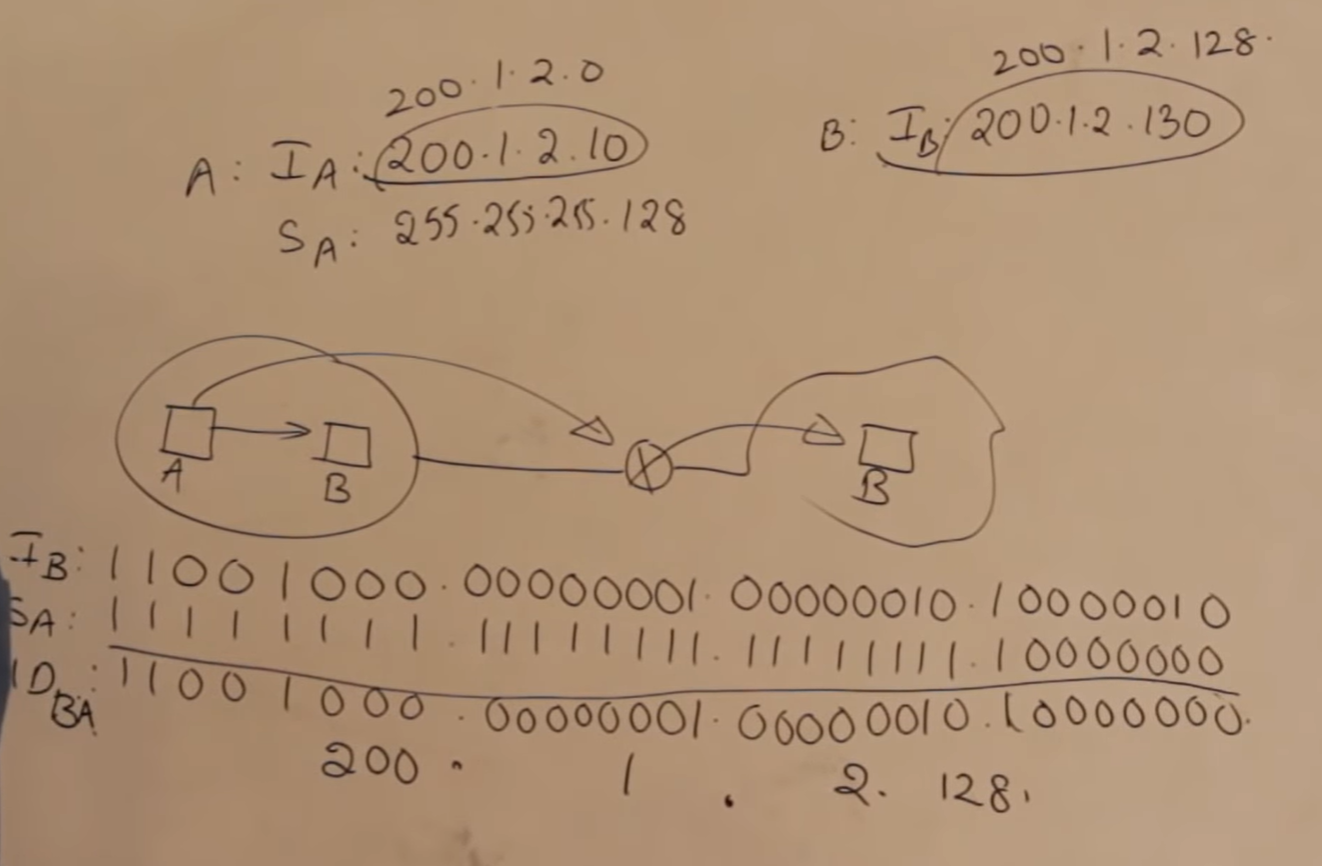 200.1.2.0
A: IA: 200.1.2.10
SA: 255.255.255.128
200.1.2.128.
B: IB: 200.1.2.130
A
B
B
IB: 11001000.00000001.00000010.10000010
SA: 11111111.11111111.11111111.10000000
IDBA: 11001000.00000001.00000010.10000000.
200.1.2.128.